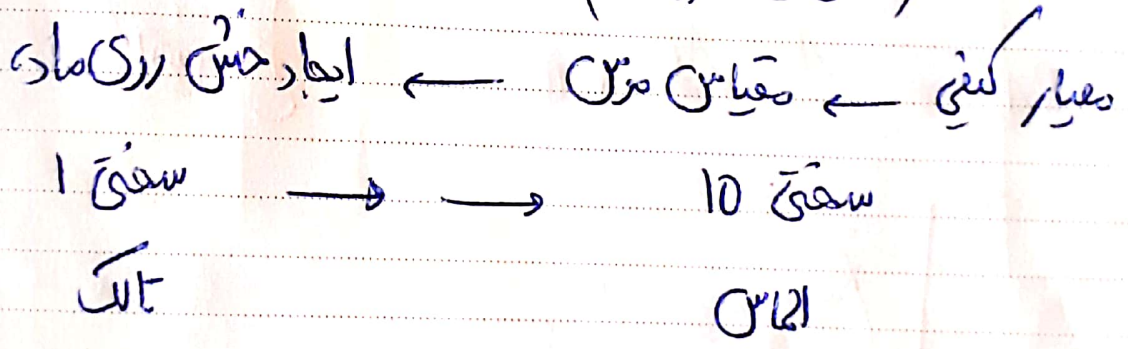 معیار کیفی ← مقیاس موس ← ایجاد خش روی ماده
سختی 10 → → سختی 1
الماس تالک